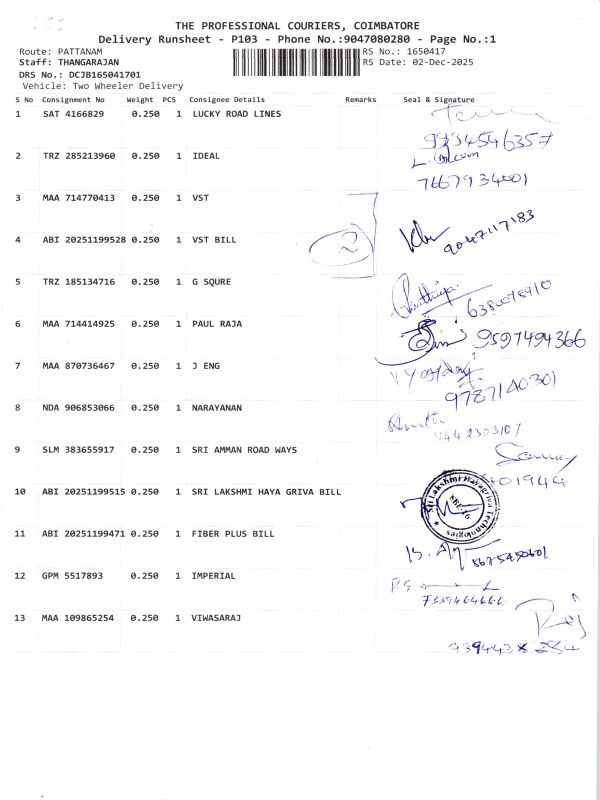 THE PROFESSIONAL COURIERS, COIMBATORE
Delivery Runsheet - P103 - Phone No.:9047080280 - Page No.:1
Route: PATTANAM
RS No.: 1650417
Staff: THANGARAJAN
RS Date: 02-Dec-2025
DRS No.: DCJB165041701
Vehicle: Two Wheeler Delivery
S No Consignment No Weight PCS Consignee Details Remarks Seal & Signature
1 SAT 4166829 0.250 1 LUCKY ROAD LINES
2 TRZ 285213960 0.250 1 IDEAL
7667934001
3 MAA 714770413 0.250 1 VST
2
4 ABI 20251199528 0.250 1 VST BILL
9047117183
5 TRZ 185134716 0.250 1 G SQURE
6 MAA 714414925 0.250 1 PAUL RAJA
9597494366
7 MAA 870736467 0.250 1 J ENG
9787140301
8 NDA 906853066 0.250 1 NARAYANAN
9 SLM 383655917 0.250 1 SRI AMMAN ROAD WAYS
10 ABI 20251199515 0.250 1 SRI LAKSHMI HAYA GRIVA BILL
Sri Lakshmi Hayagriva Technologies
11 ABI 20251199471 0.250 1 FIBER PLUS BILL
12 GPM 5517893 0.250 1 IMPERIAL
13 MAA 109865254 0.250 1 VIWASARAJ